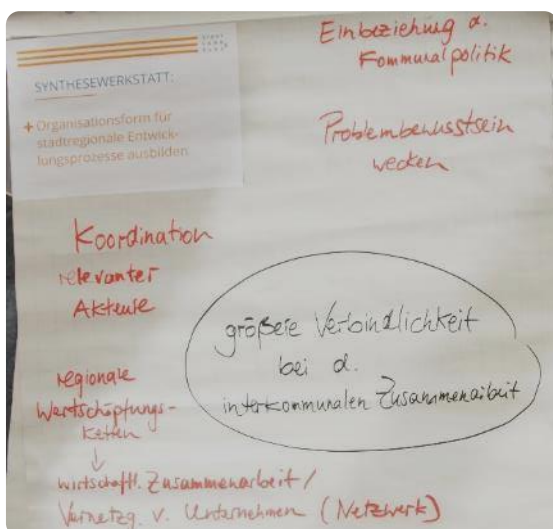 SYNTHESEWERKSTATT:
+ Organisationsform für
stadtregionale Entwick-
lungsprozesse ausbilden
Einbeziehung d.
Kommunalpolitik
Problembewusstsein
wecken
Koordination
relevanter
Akteure
größere Verbindlichkeit
bei d.
interkommunalen Zusammenarbeit
regionale
Wertschöpfungs-
Ketten
↓
wirtschaftl. Zusammenarbeit/
Vernetzg. v. Unternehmen (Netzwerk)